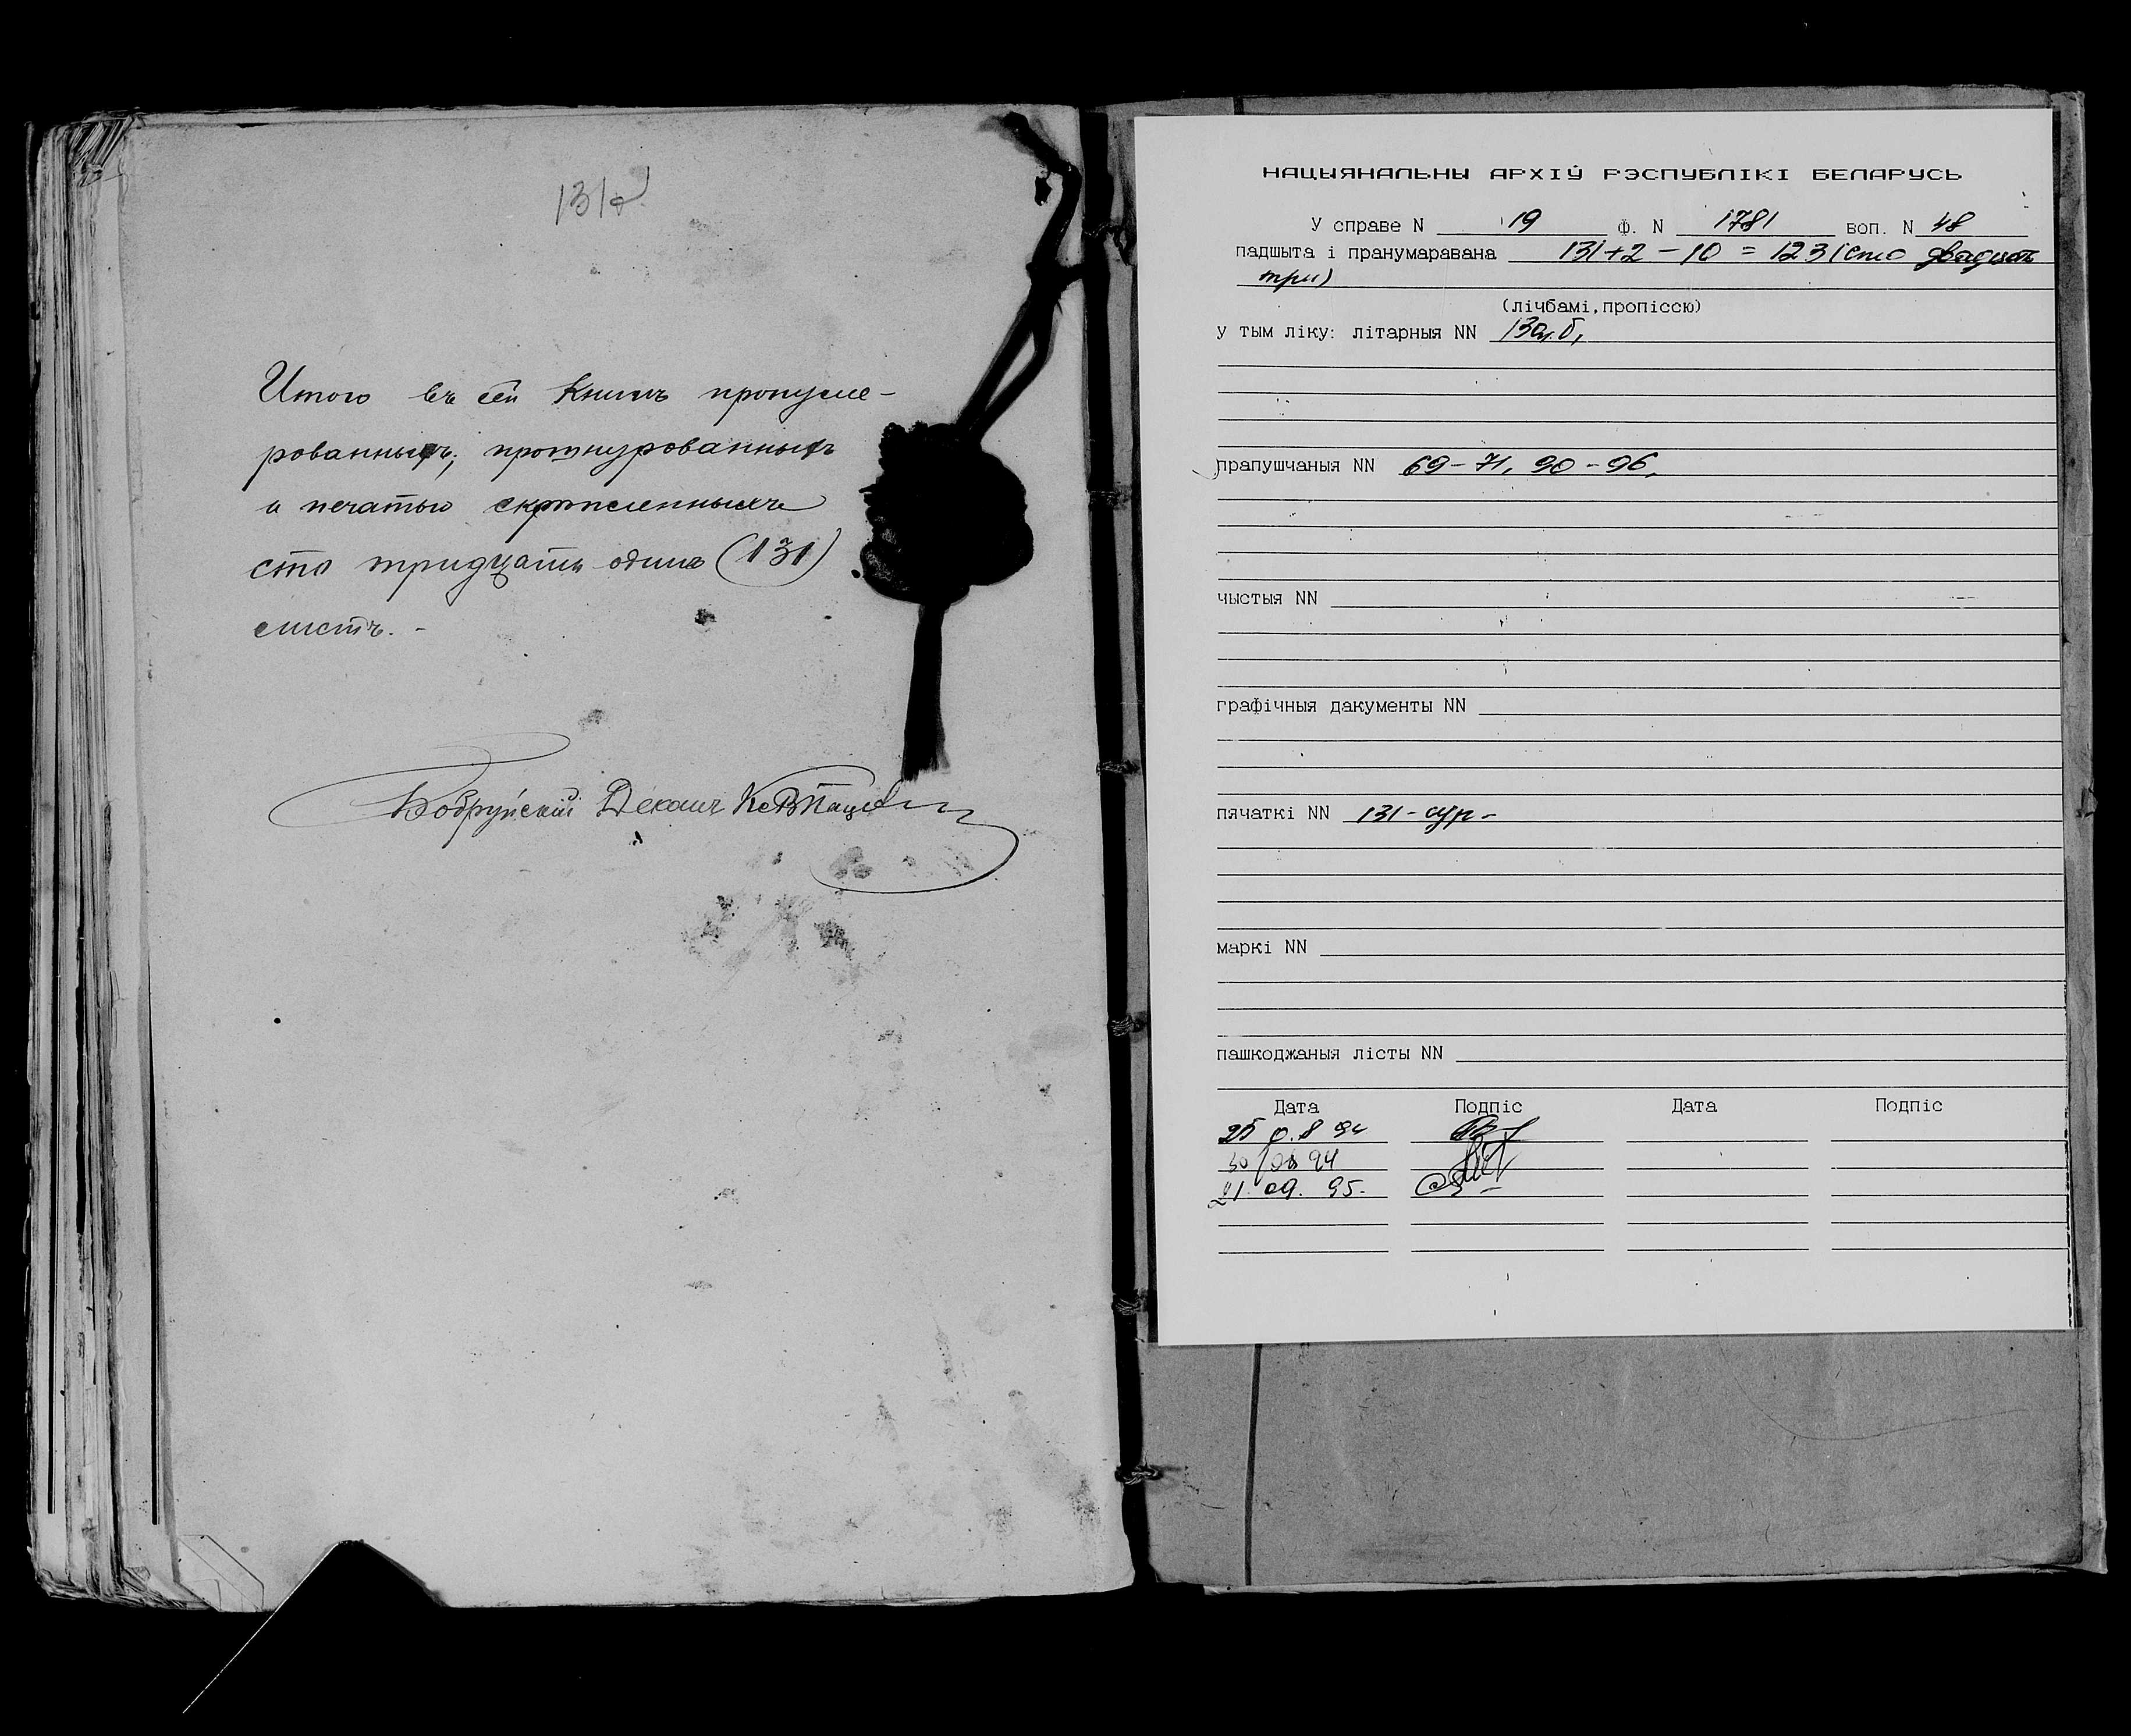 131
Итого въ сей Книгѣ пронуме-
рованныхъ, прошнурованныхъ
и печатью скрѣпленныхъ
сто тридцать одинъ (131)
листъ. -
Бобруйскій Деканъ Кс
НАЦЫЯНАЛЬНЫ АРХІЎ РЭСПУБЛІКІ БЕЛАРУСЬ
У справе N 19 ф. N 1781 воп. N 48
падшыта і пранумаравана 131+2-10=123 (сто двадцать
три)
(лічбамі,пропіссю)
у тым ліку: літарныя NN 13а,б,
прапушчаныя NN 69-71, 90-96.
чыстыя NN
графічныя дакументы NN
пячаткі NN 131-сур-
маркі NN
пашкоджаныя лісты NN
Дата Подпіс Дата Подпіс
25 0.8 94
30/08 94
21.09. 95.